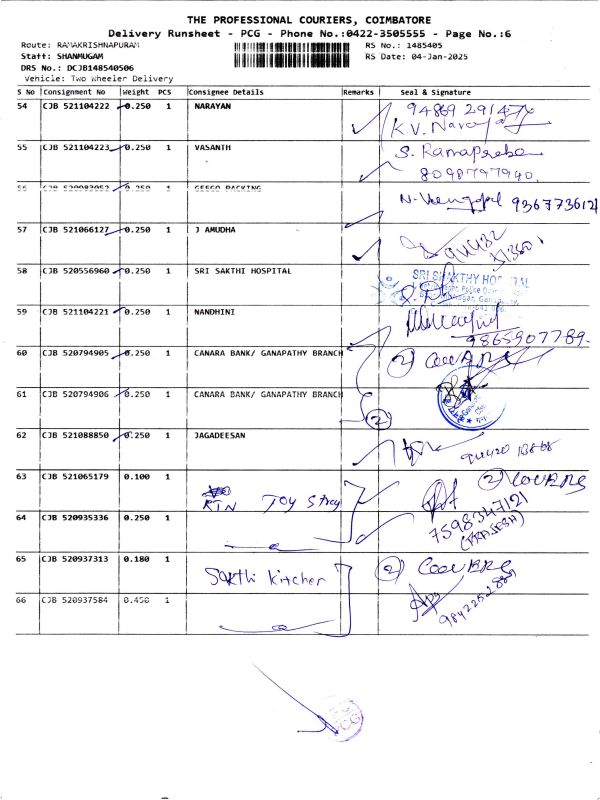 THE PROFESSIONAL COURIERS, COIMBATORE
Delivery Runsheet - PCG - Phone No.:0422-3505555 - Page No.:6
Route: RAMAKRISHNAPURAM RS No.: 1485405
Staff: SHANMUGAM RS Date: 04-Jan-2025
DRS No.: DCJB148540506
Vehicle: Two Wheeler Delivery
S No Consignment No Weight PCS Consignee Details Remarks Seal & Signature
54 CJB 521104222 0.250 1 NARAYAN
K.V. Narayan
55 CJB 521104223 0.250 1 VASANTH S. Ramaprabha
8098797940.
56 CJB 520983052 0.250 1 GEECO PACKING
9367736121
57 CJB 521066127 0.250 1 J AMUDHA
58 CJB 520556960 0.250 1 SRI SAKTHI HOSPITAL
SRI SAKTHY HOSPITAL
59 CJB 521104221 0.250 1 NANDHINI
9865907789-
60 CJB 520794905 0.250 1 CANARA BANK/ GANAPATHY BRANCH 2 COVERS
61 CJB 520794906 0.250 1 CANARA BANK/ GANAPATHY BRANCH
2
62 CJB 521088850 0.250 1 JAGADEESAN
63 CJB 521065179 0.100 1 2 COVERS
RTN Toy Story
7598347121
64 CJB 520935336 0.250 1
65 CJB 520937313 0.180 1 Sakthi kitchen 2 COVERS
66 CJB 520937584 0.450 1
PCG